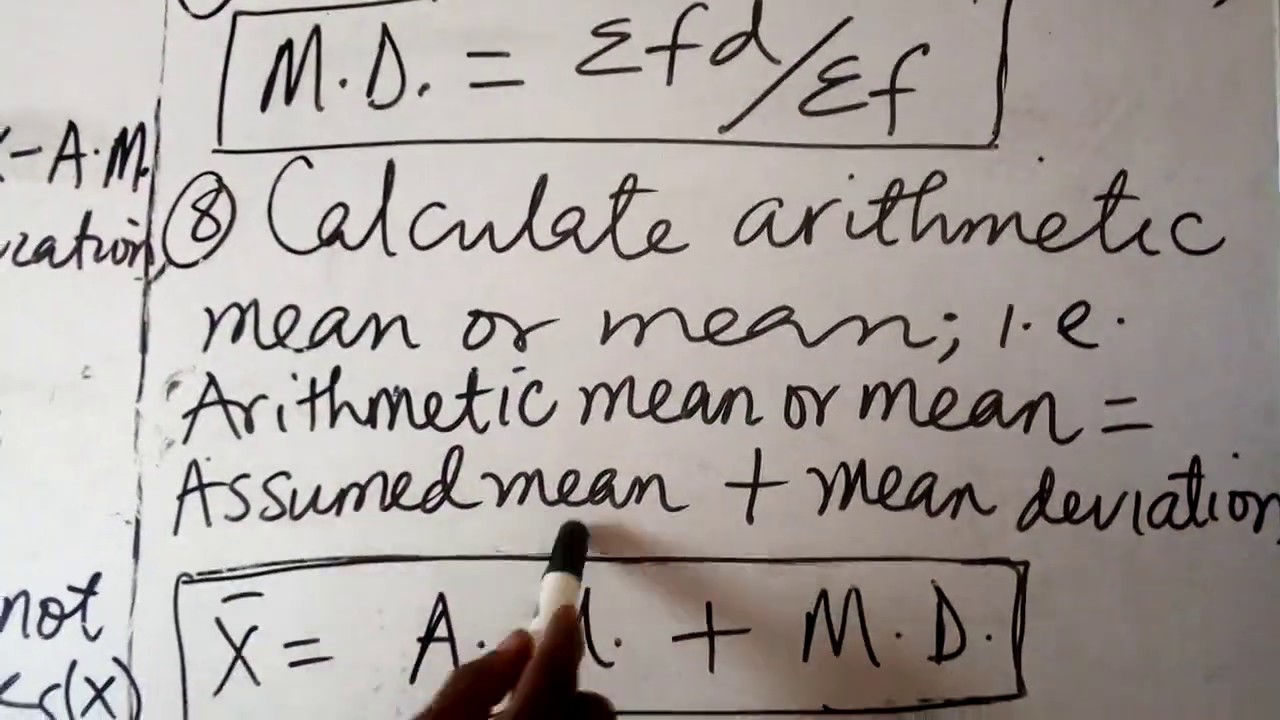 M.D. = Σfd/Σf
- A.M.
⑧ Calculate arithmetic
mean or mean; i.e.
Arithmetic mean or mean =
Assumed mean + mean deviation
not
X̄ = A. M. + M.D.
(X)